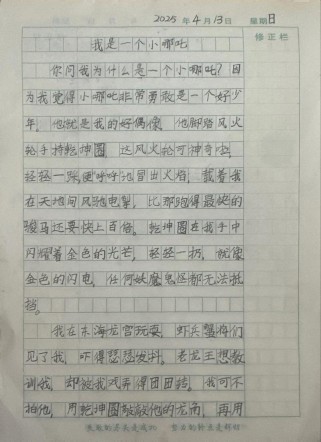 2025年4月13日 星期日
修正栏
我是一个小哪吒
你问我为什么是一个小哪吒?因
为我觉得小哪吒非常勇敢是一个好少
年,他就是我的好偶像。他脚踏风火
轮手持乾坤圈,这风火轮可神奇啦,
轻轻一踩便呼呼地冒出火焰,载着我
在天地间风驰电掣,比那跑得最快的
骏马还要快上百倍。乾坤圈在我手中
闪耀着金色的光芒,轻轻一扔,就像
金色的闪电,任何妖魔鬼怪都无法抵
挡。
我在东海龙宫玩耍,虾兵蟹将们
见了我,吓得瑟瑟发抖。老龙王想教
训我,却被我戏弄得团团转。我可不
怕他,用乾坤圈敲敲他的龙角,再用